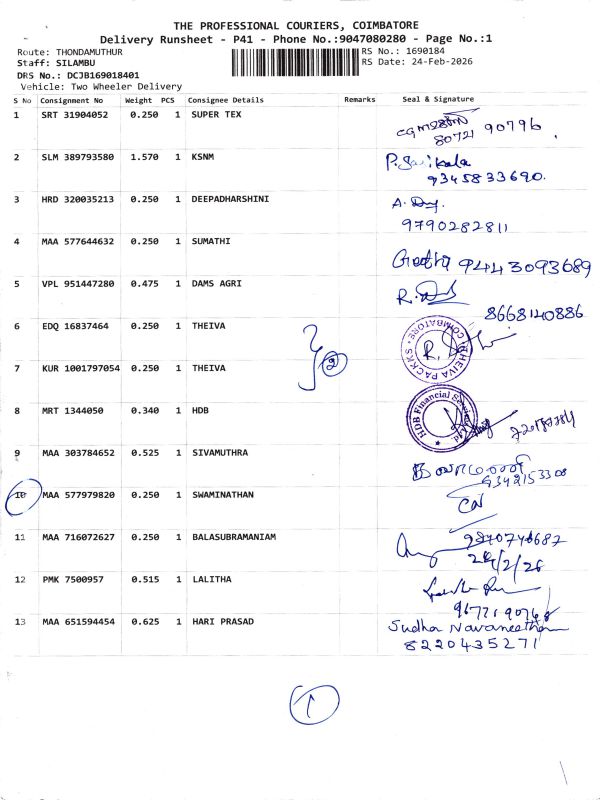 THE PROFESSIONAL COURIERS, COIMBATORE
Delivery Runsheet - P41 - Phone No.:9047080280 - Page No.:1
Route: THONDAMUTHUR
RS No.: 1690184
Staff: SILAMBU
RS Date: 24-Feb-2026
DRS No.: DCJB169018401
Vehicle: Two Wheeler Delivery
S No Consignment No Weight PCS Consignee Details Remarks Seal & Signature
1 SRT 31904052 0.250 1 SUPER TEX
80721 90796
2 SLM 389793580 1.570 1 KSNM
P. Sasikala
9345833690.
3 HRD 320035213 0.250 1 DEEPADHARSHINI
9790282811
4 MAA 577644632 0.250 1 SUMATHI
Geetha 9444 3093689
5 VPL 951447280 0.475 1 DAMS AGRI
8668140886
6 EDQ 16837464 0.250 1 THEIVA
THEIVA PACKKS COIMBATORE
7 KUR 1001797054 0.250 1 THEIVA
2
8 MRT 1344050 0.340 1 HDB
HDB Financial
9 MAA 303784652 0.525 1 SIVAMUTHRA
9342153308
10 MAA 577979820 0.250 1 SWAMINATHAN
11 MAA 716072627 0.250 1 BALASUBRAMANIAM
24/2/26
12 PMK 7500957 0.515 1 LALITHA
13 MAA 651594454 0.625 1 HARI PRASAD
Sudha Navaneetham
8220435271
1